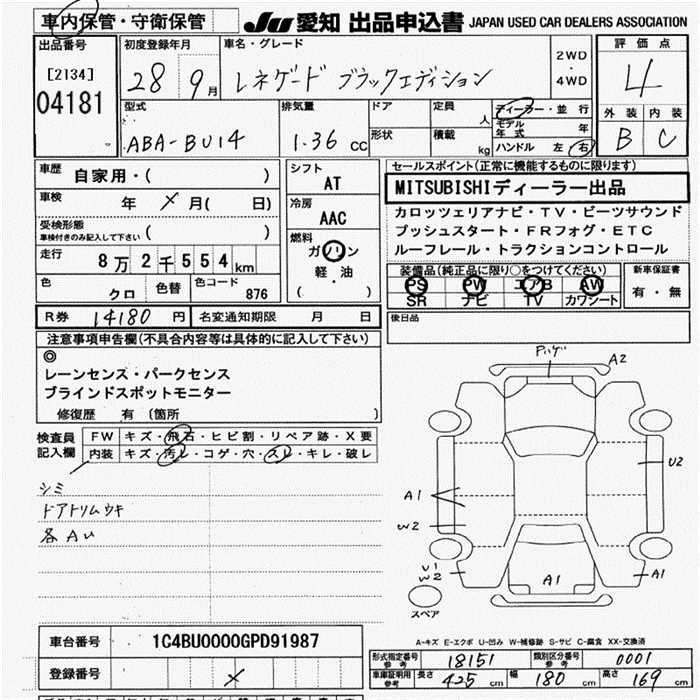 車内保管・守衛保管
JU 愛知 出品申込書 JAPAN USED CAR DEALERS ASSOCIATION
出品番号
[2134]
04181
初度登録年月
28 9月
車名・グレード
レネゲード ブラックエディション
2WD
・
4WD
評価点
4
外装 内装
B C
型式
ABA-BU14
排気量
1.36 CC
ドア
形状
定員
人
積載
kg
ディーラー・並行
モデル年式 年
ハンドル 左 右
車歴
自家用・( )
車検 年 メ 月( 日)
受検形態
車検付きのみ記入して下さい ( )
走行 8万2千554km
色 クロ 色替 色コード 876
シフト
AT
冷房
AAC
燃料
ガソリン
軽・油
( )
セールスポイント(正常に機能するものに限ります)
MITSUBISHIディーラー出品
カロッツェリアナビ・TV・ビーツサウンド
プッシュスタート・FRフォグ・ETC
ルーフレール・トラクションコントロール
装備品(純正品に限り○をつけてください)
PS PW エアB AW
SR ナビ TV カワシート
新車保証書
有・無
R券 14180 円 名変通知期限 月 日
後日品
注意事項申告欄(不具合内容等は具体的に記入して下さい)
◎
レーンセンス・パークセンス
ブラインドスポットモニター
修復歴 有 (箇所 )
検査員記入欄
FW キズ・飛石・ヒビ割・リペア跡・X要
内装 キズ・汚レ・コゲ・穴・スレ・キレ・破レ
シミ
ドアトリムウキ
各AU
ハゲ
A2
U2
A1
W2
U1
W2
A1
A1
スペア
A-キズ E-エクボ U-凹み W-補修跡 S-サビ C-腐食 XX-交換済
車台番号 1C4BU0000GPD91987
登録番号 メ
形式指定番号 参考 18151 類別区分番号 参考 0001
車庫証明用 参考 長さ 425 cm 幅 180 cm 高さ 169 cm